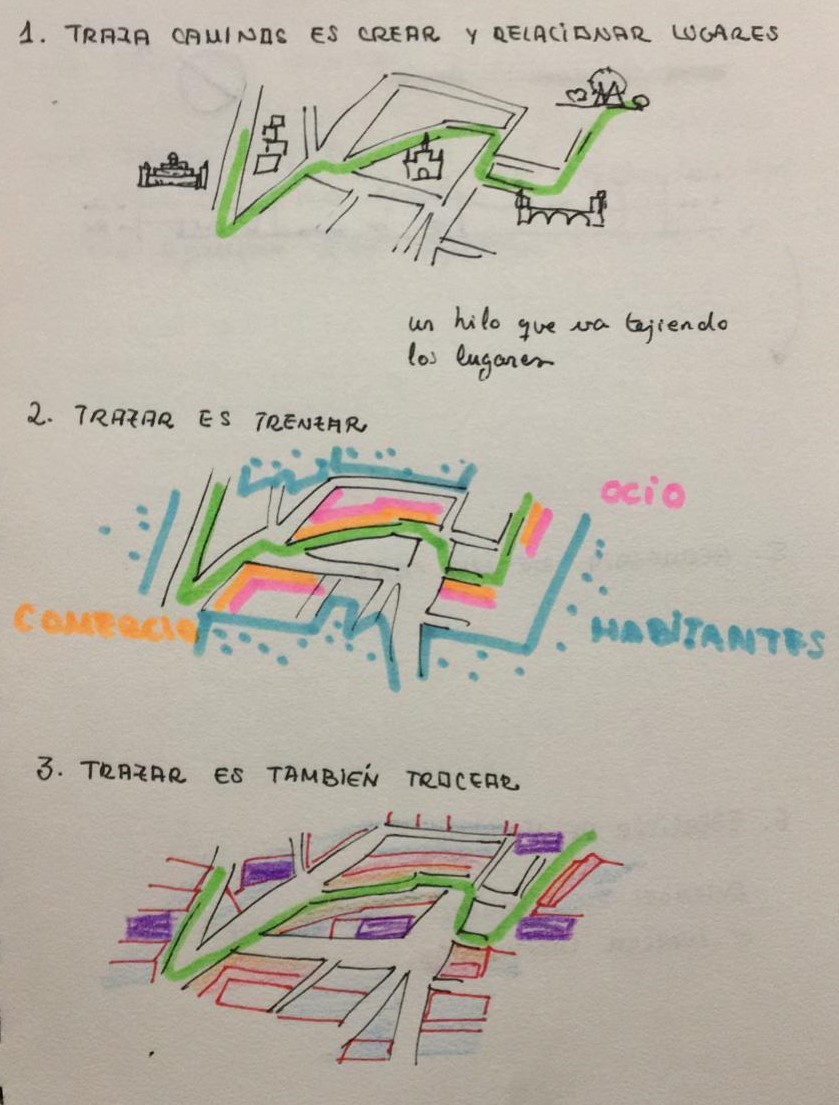 1. TRAZA CAMINOS ES CREAR Y RELACIONAR LUGARES
un hilo que va tejiendo
los lugares
2. TRAZAR ES TRENZAR
OCIO
COMERCIO
HABITANTES
3. TRAZAR ES TAMBIÉN TROCEAR